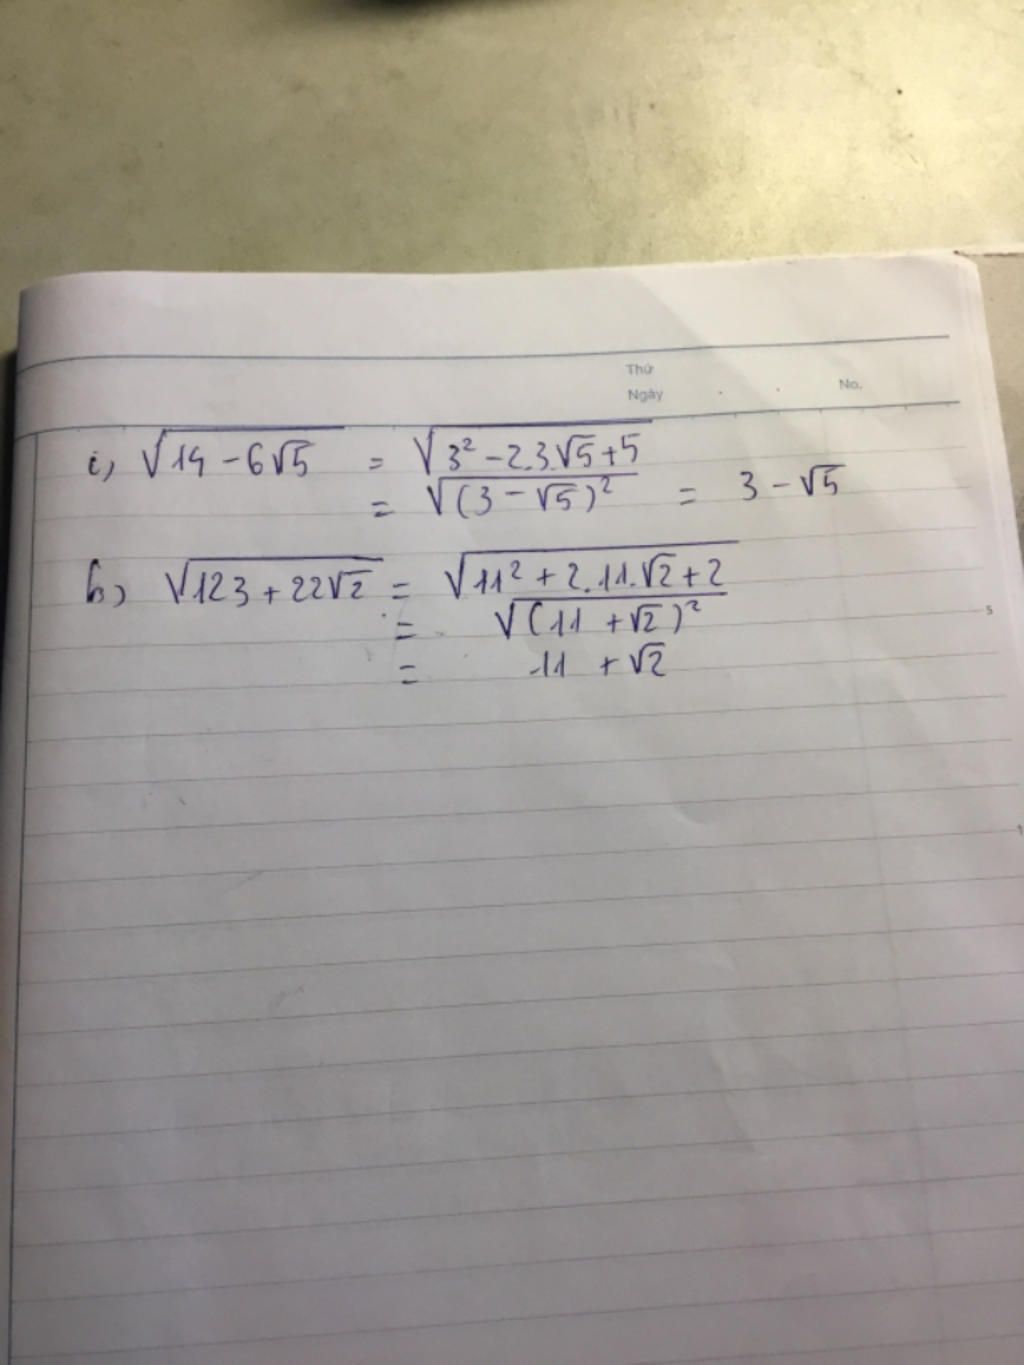 Thứ
Ngày No.
i, √14 - 6√5 = √3² - 2.3.√5 + 5
= √(3 - √5)² = 3 - √5
h, √123 + 22√2 = √11² + 2.11.√2 + 2
= √(11 + √2)²
5
= 11 + √2
1